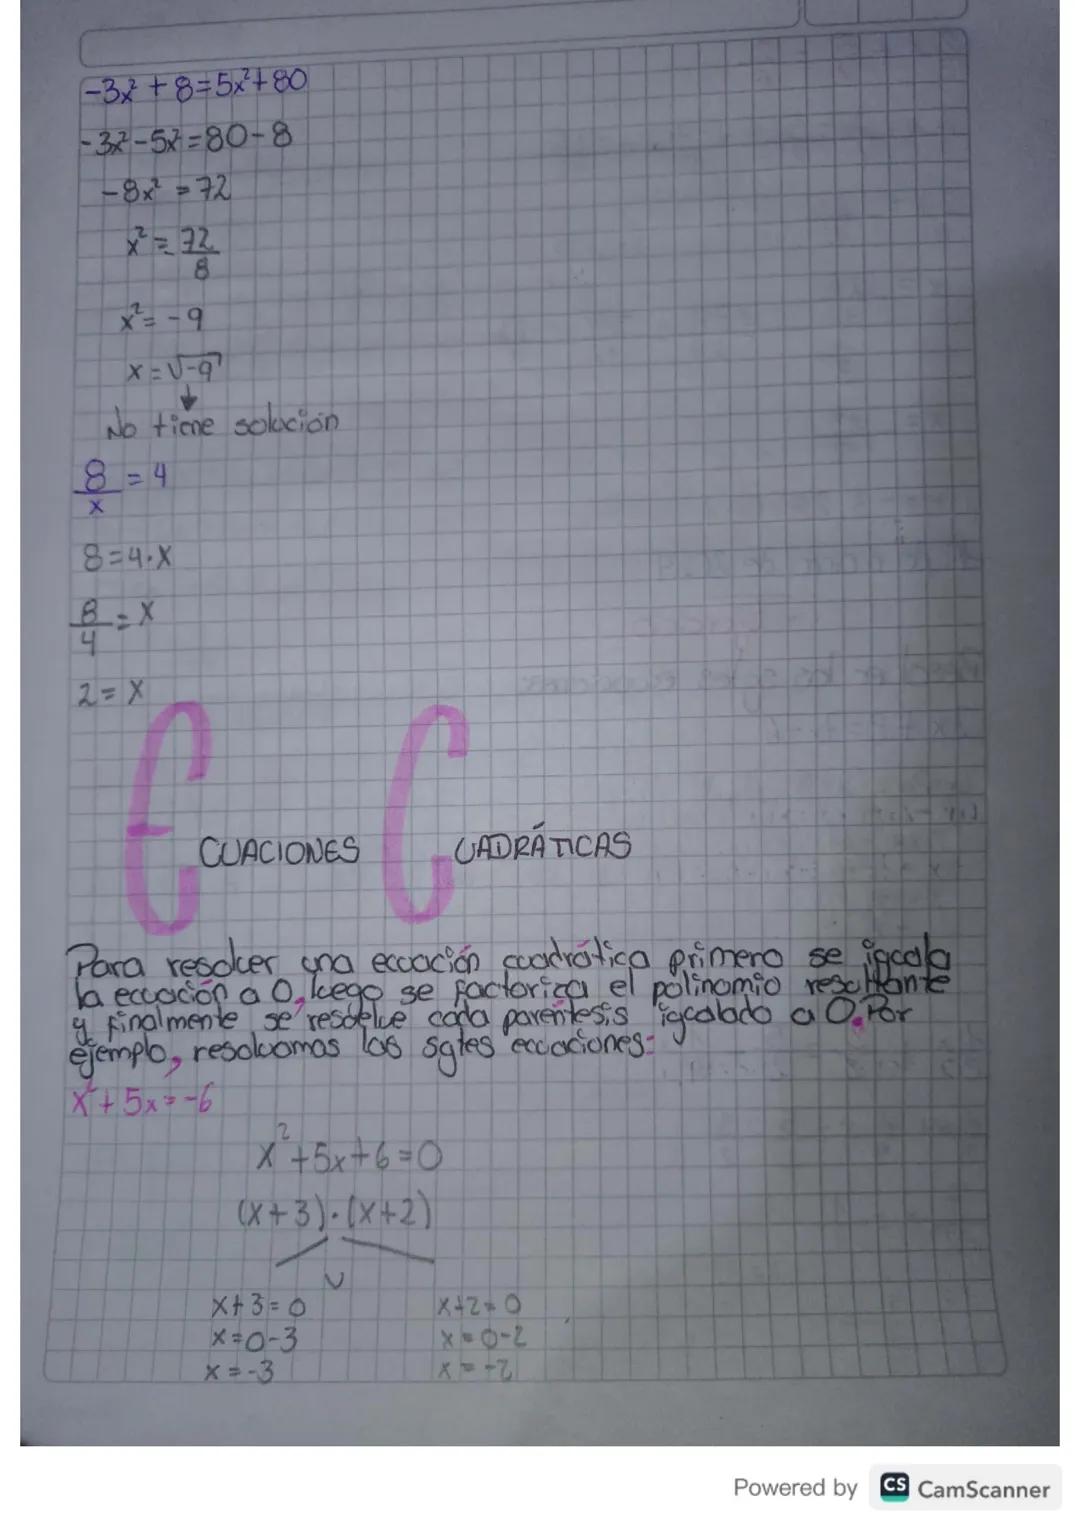 -3x² + 8 = 5x² + 80
-3x² - 5x² = 80 - 8
-8x² = 72
x² = 72
8
x² = -9
x = √-9
↓
No tiene solución
8 = 4
x
8 = 4·x
8 = x
4
2 = x
ECUACIONES CUADRÁTICAS
Para resolver una ecuación cuadrática primero se iguala
la ecuación a 0, luego se factoriza el polinomio resultante
y finalmente se resuelve cada paréntesis igualado a 0. Por
ejemplo, resolvamos las sgtes ecuaciones:
x² + 5x = -6
x² + 5x + 6 = 0
(x+3)·(x+2)
v
x+3=0 x+2=0
x=0-3 x=0-2
x=-3 x=-2
Powered by CS CamScanner